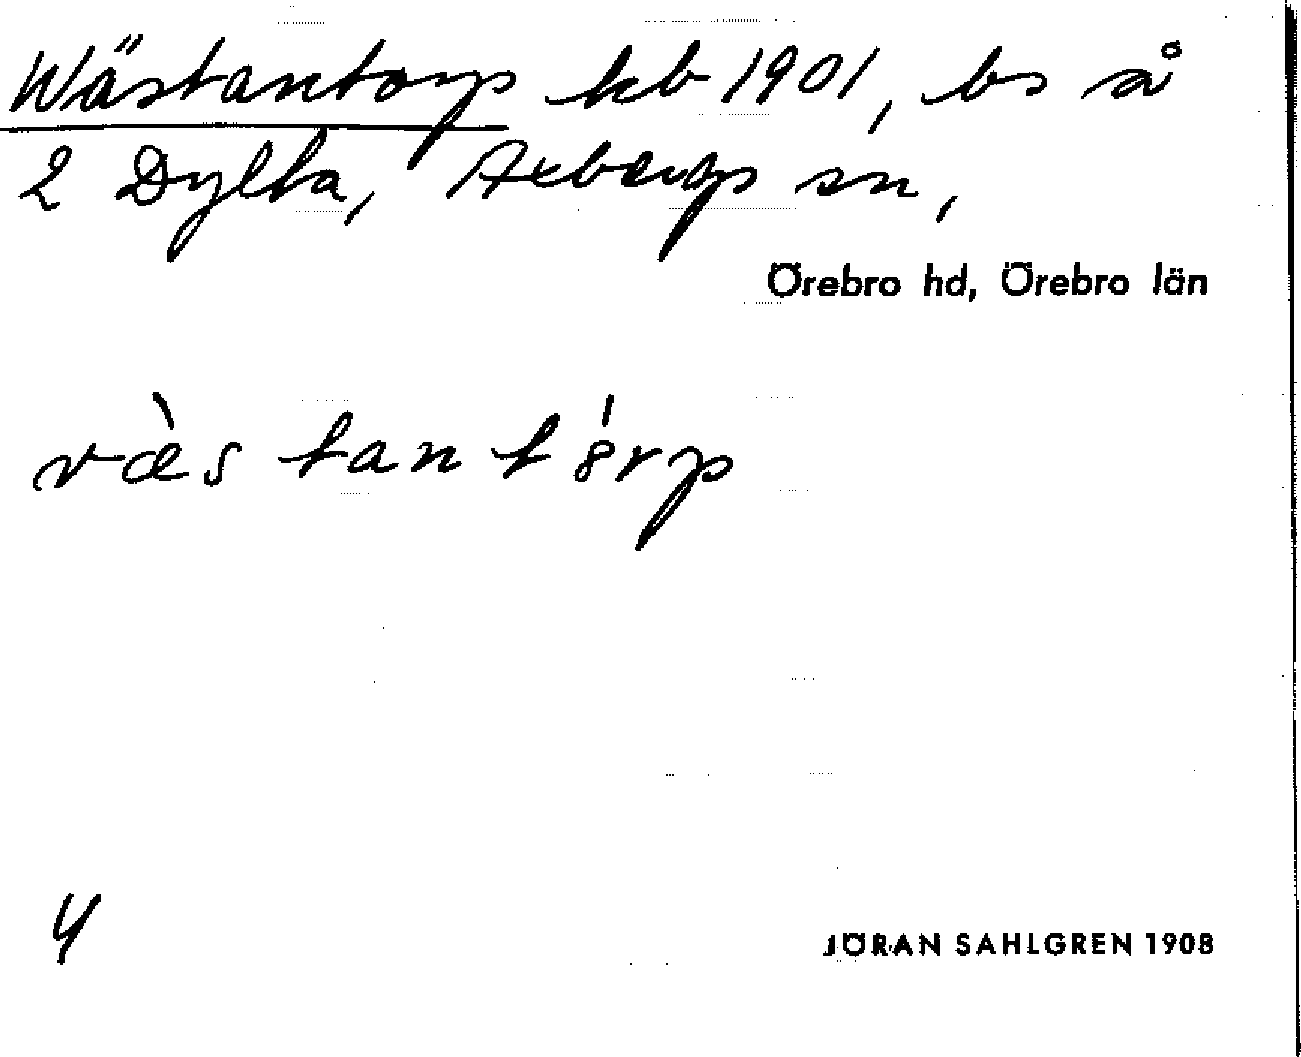 Wästantorp kb 1901, bs å
2 Dylta, Axbergs sn,
Örebro hd, Örebro län
væ̀stant8́rp
4
JÖRAN SAHLGREN 1908